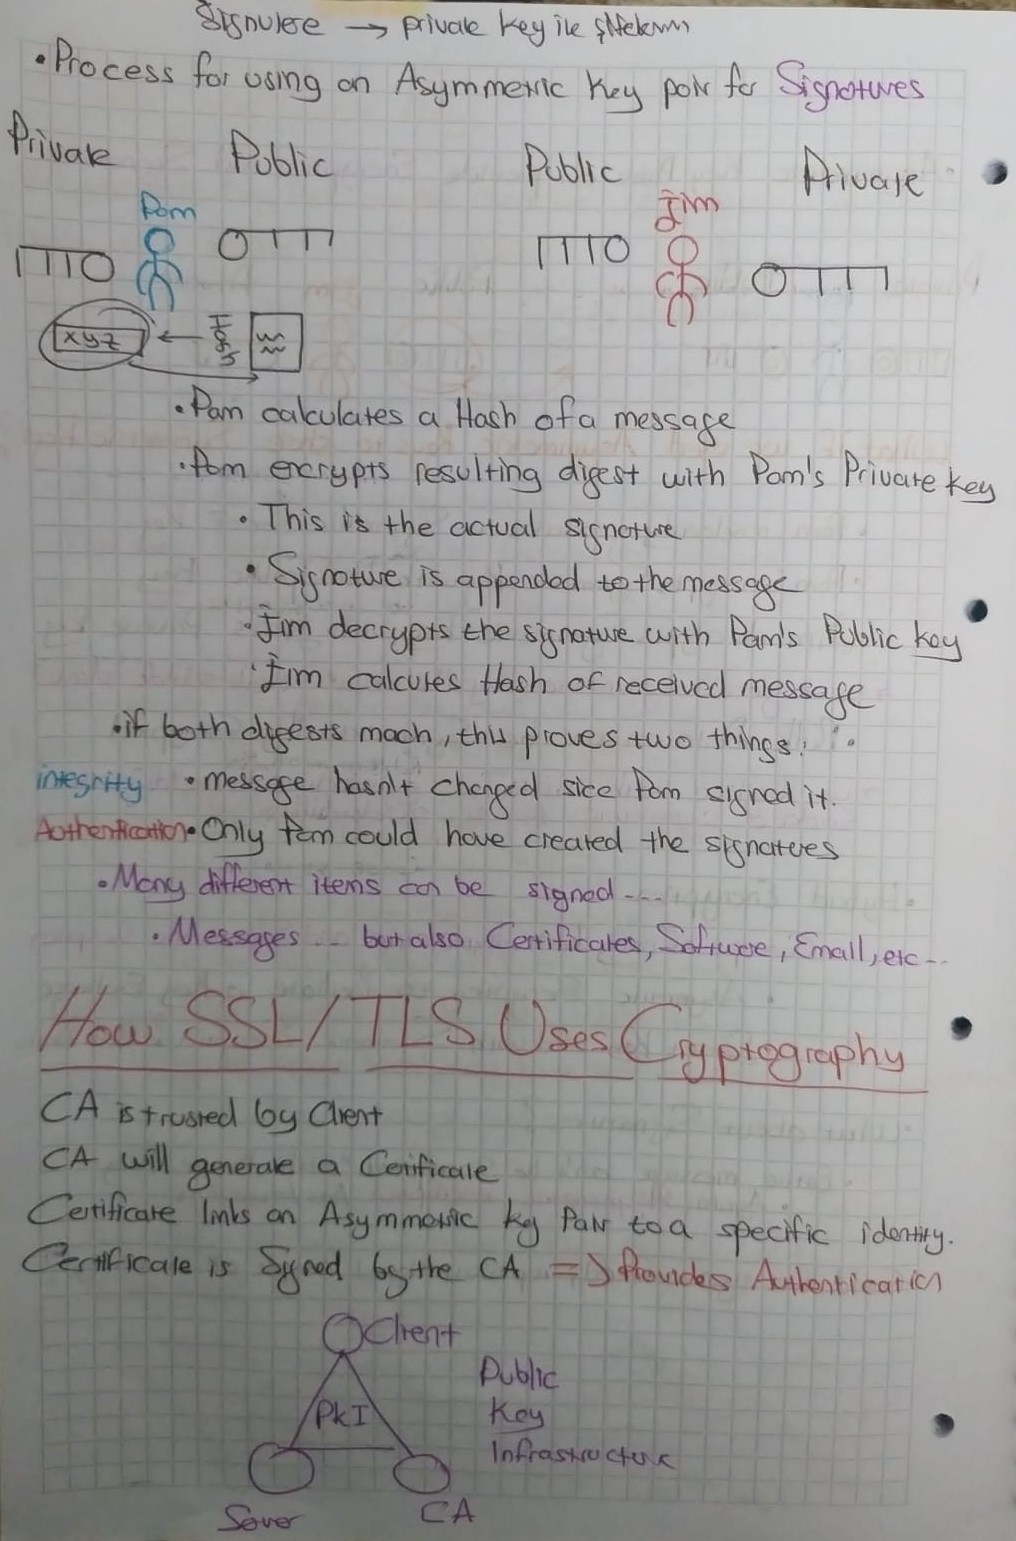 Signulere → private key ile şifreleme
• Process for using an Asymmetric Key pair for Signatures
Private Public Public Private
Pam Jim
xyz ← Hash
• Pam calculates a Hash of a message
• Pam encrypts resulting digest with Pam's Private key
• This is the actual signature
• Signature is appended to the message
• Jim decrypts the signature with Pam's Public key
• Jim calcutes Hash of received message
• if both digests mach, this proves two things:
integrity • message hasn't changed sice Pam signed it.
Authentication • Only Pam could have created the signatures
• Many different items can be signed ---
• Messages... but also Certificates, Software, Email, etc...
How SSL/TLS Uses Cryptography
CA is trusted by Client
CA will generate a Cerificate
Certificate links an Asymmetric key Pair to a specific identity.
Certificate is Signed by the CA => Provides Authentication
Client
PkI
Public
Key
Infrastructure
Server
CA